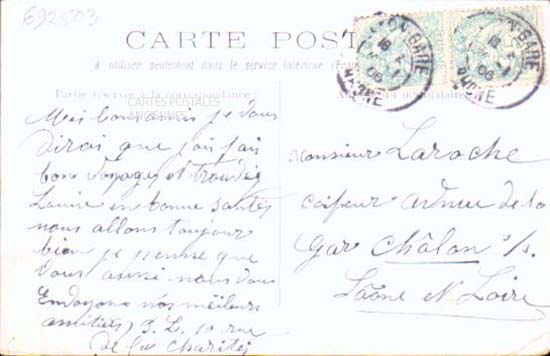 692503
CARTE POST
A utiliser seulement dans le service intérieur
Partie réservée à la correspondance
CARTES POSTALES
ANCIENNES
LYON-GARE
RHONE
LYON-GARE
RHONE
Mes bons amis je vous
dirai que j'ai fai
bon voyages et trouvéz
Louise en bonne santés
nous allons toujour
bien je pense que
vous aussi nous vous
Envoyons nos meilleurs
amitiés J. L. 10 rue
de la Charités
Monsieur Laroche
coifeur avenue de la
Gar Châlon s/s.
Saône et Loire